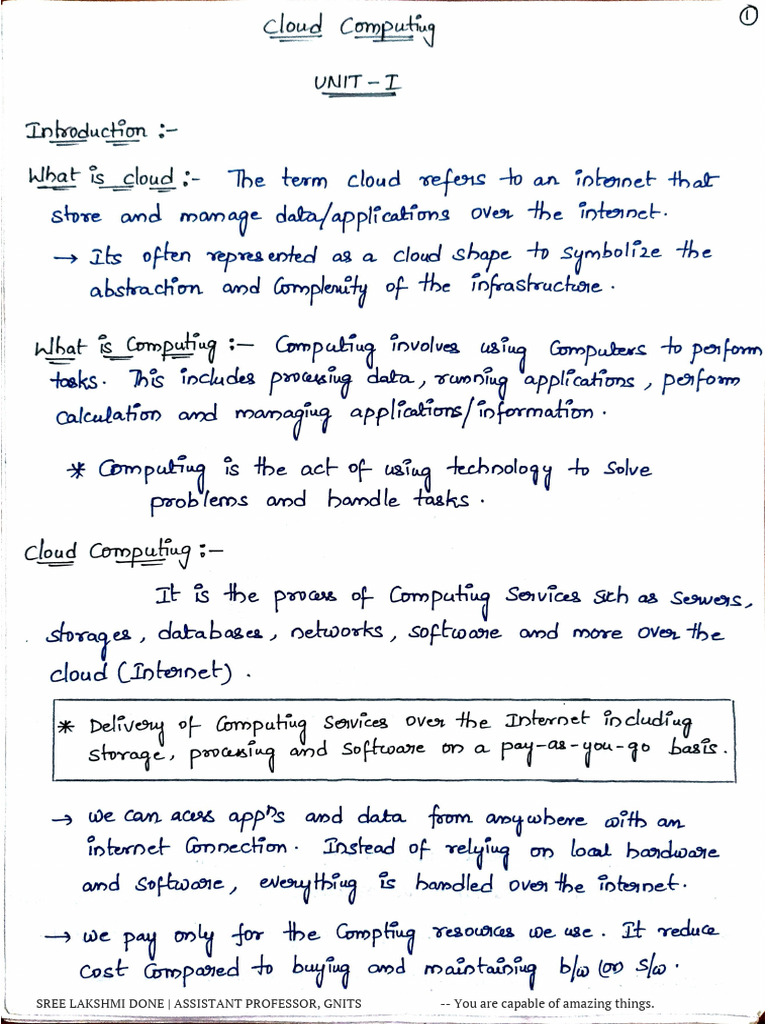 ①
Cloud Computing
UNIT - I
Introduction :-
What is cloud :- The term cloud refers to an internet that
store and manage data/applications over the internet.
→ Its often represented as a cloud shape to symbolize the
abstraction and Complenity of the infrastructure.
What is Computing :- Computing involves using Computers to perform
tasks. This includes processing data, running applications, perform
calculation and managing applications/information.
* Computing is the act of using technology to solve
problems and handle tasks.
Cloud Computing :-
It is the process of Computing Services sch as servers,
storages, databases, networks, software and more over the
cloud (Internet).
* Delivery of Computing Services over the Internet including
storage, processing and software on a pay-as-you-go basis.
→ we can acess appns and data from anywhere with an
internet Connection. Instead of relying on local hardware
and software, everything is handled over the internet.
→ we pay only for the Compting resources we use. It reduce
cost Compared to buying and maintaining h/w (or) s/w.
SREE LAKSHMI DONE | ASSISTANT PROFESSOR, GNITS -- You are capable of amazing things.